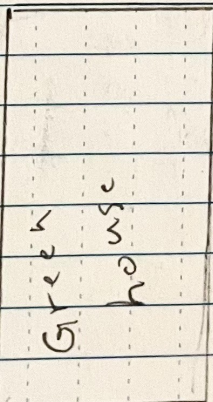 Green
house